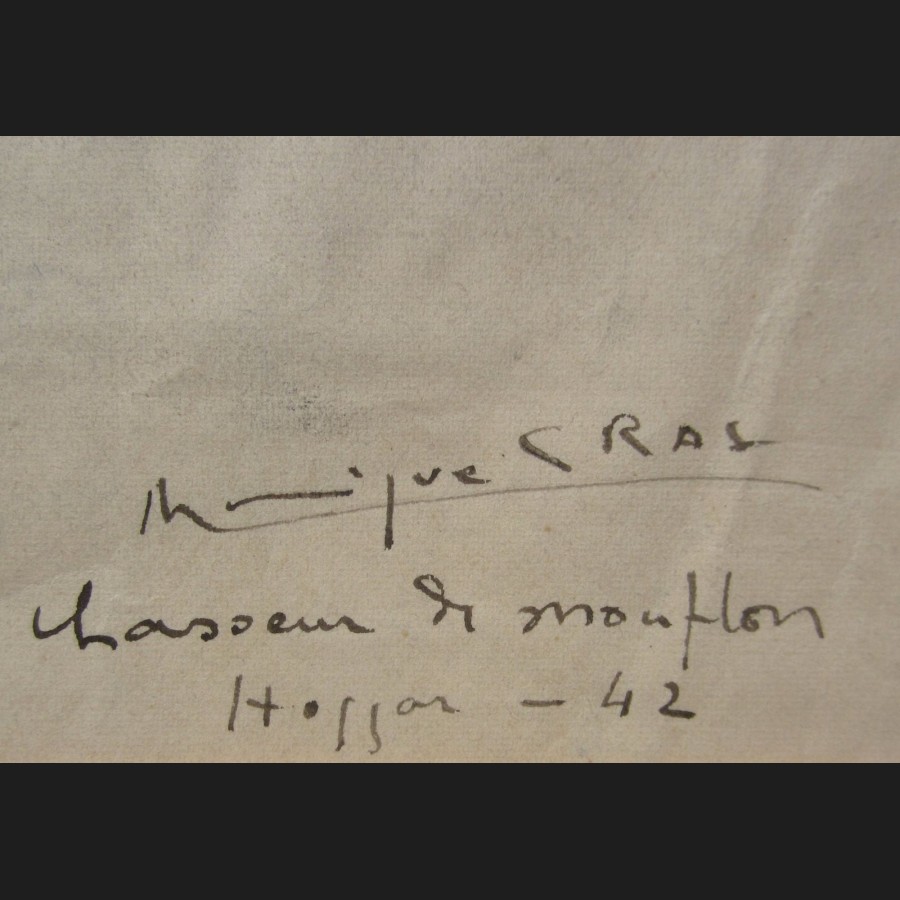 Monique CRAS
Chasseur de mouflon
Hoggar - 42